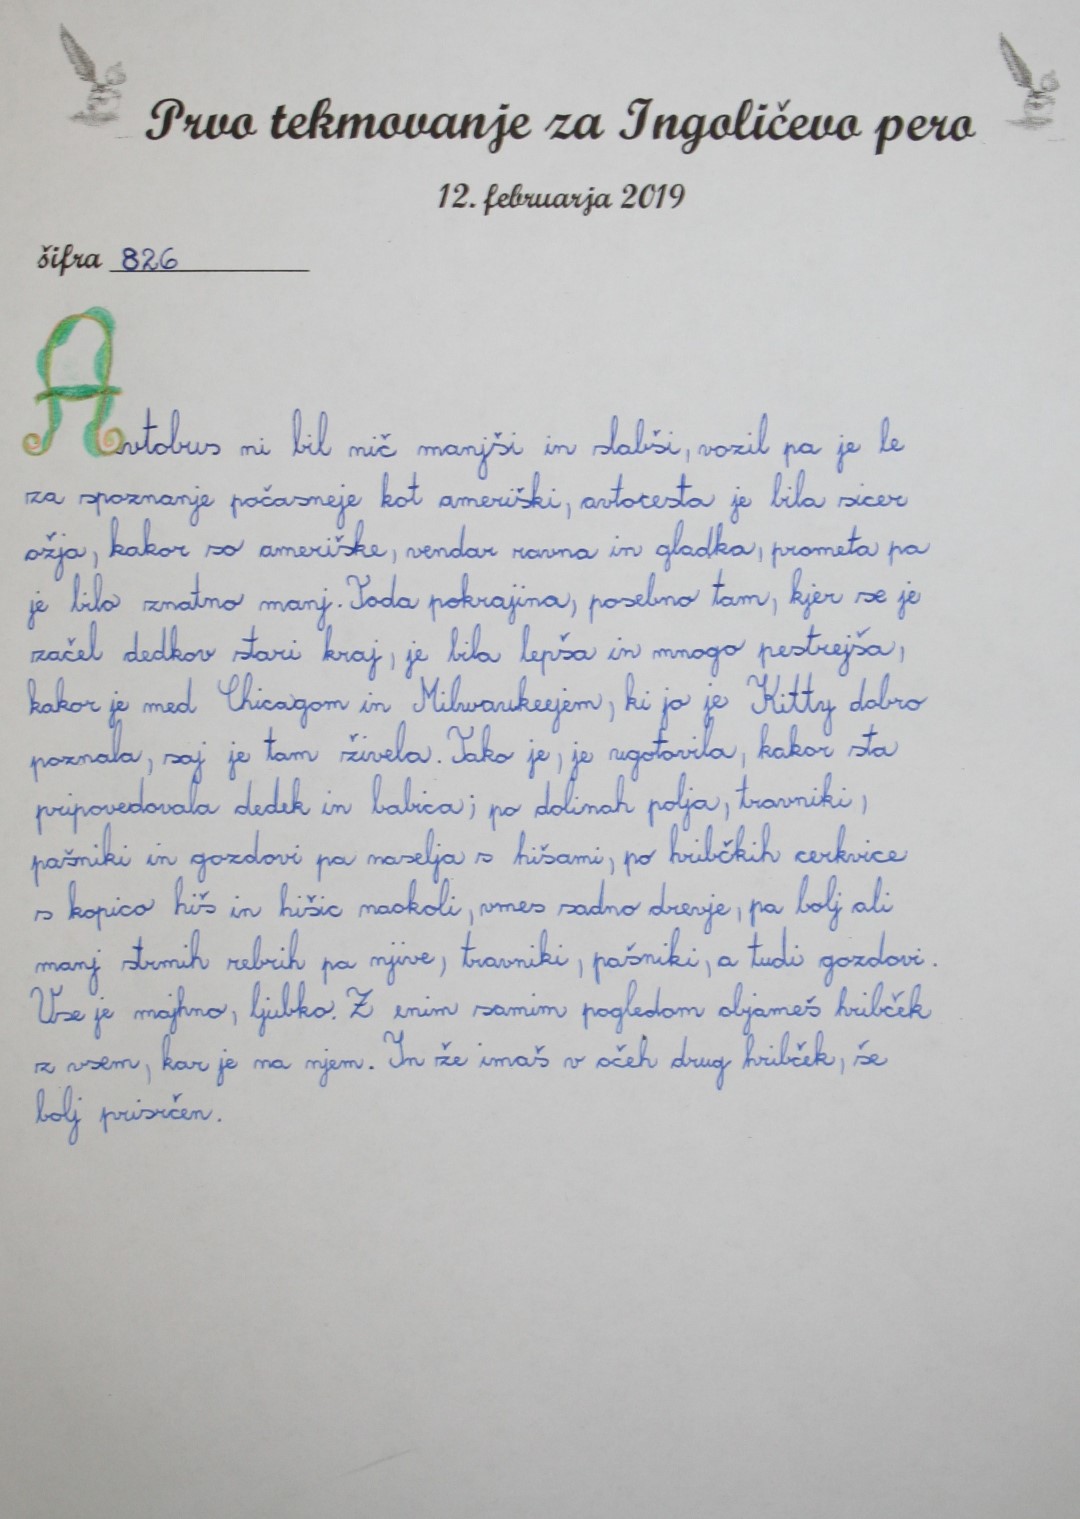 Prvo tekmovanje za Ingoličevo pero
12. februarja 2019
šifra 826
Avtobus ni bil nič manjši in slabši, vozil pa je le
za spoznanje počasneje kot ameriški, avtocesta je bila sicer
ožja, kakor so ameriške, vendar ravna in gladka, prometa pa
je bilo znatno manj. Toda pokrajina, posebno tam, kjer se je
začel dedkov stari kraj, je bila lepša in mnogo pestrejša,
kakor je med Chicagom in Milwaukeejem, ki jo je Kitty dobro
poznala, saj je tam živela. Tako je, je ugotovila, kakor sta
pripovedovala dedek in babica; po dolinah polja, travniki,
pašniki in gozdovi pa naselja s hišami, po hribčkih cerkvice
s kopico hiš in hišic naokoli, vmes sadno drevje, pa bolj ali
manj strmih rebrih pa njive, travniki, pašniki, a tudi gozdovi.
Vse je majhno, ljubko. Z enim samim pogledom objameš hribček
z vsem, kar je na njem. In že imaš v očeh drug hribček, še
bolj prisrčen.